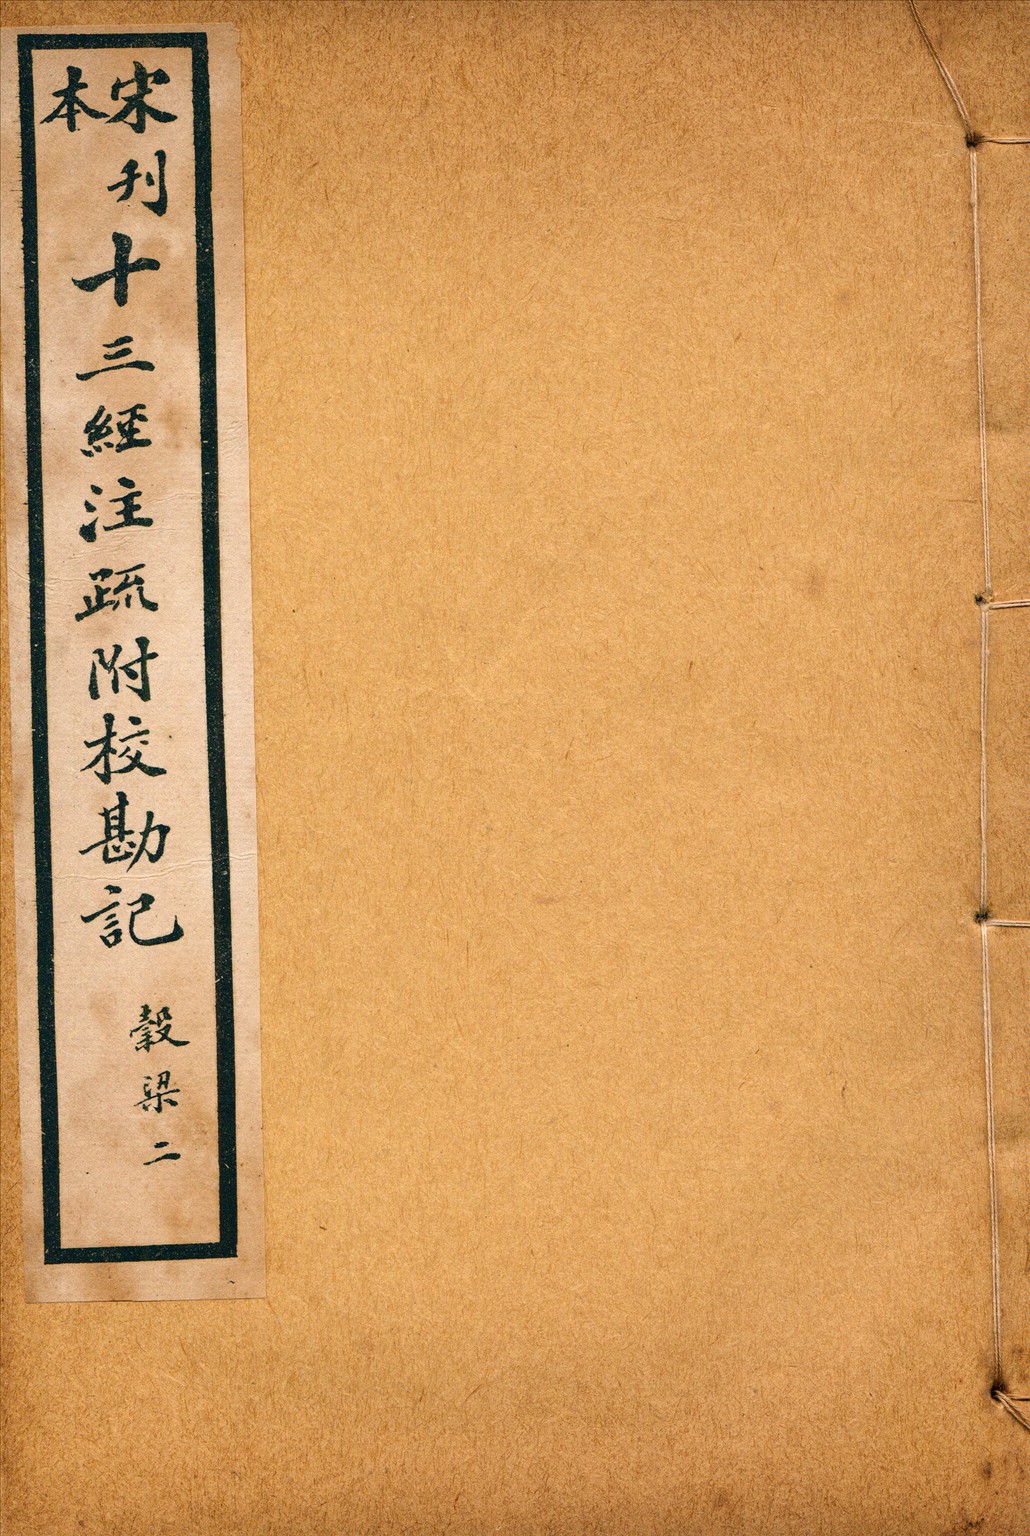 宋本刊十三經注疏附校勘記
穀梁二